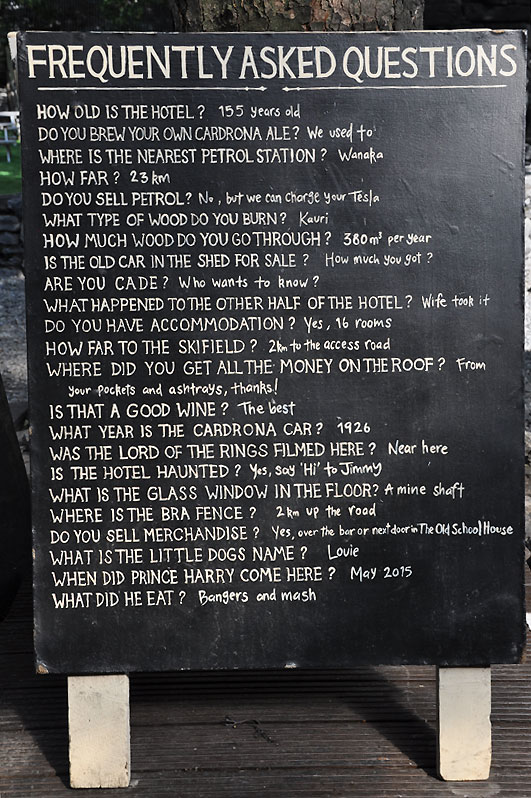 FREQUENTLY ASKED QUESTIONS
HOW OLD IS THE HOTEL? 155 years old
DO YOU BREW YOUR OWN CARDRONA ALE? We used to
WHERE IS THE NEAREST PETROL STATION? Wanaka
HOW FAR? 23 km
DO YOU SELL PETROL? No, but we can charge your Tesla
WHAT TYPE OF WOOD DO YOU BURN? Kauri
HOW MUCH WOOD DO YOU GO THROUGH? 380m³ per year
IS THE OLD CAR IN THE SHED FOR SALE? How much you got?
ARE YOU CADE? Who wants to know?
WHAT HAPPENED TO THE OTHER HALF OF THE HOTEL? Wife took it
DO YOU HAVE ACCOMMODATION? Yes, 16 rooms
HOW FAR TO THE SKIFIELD? 2km to the access road
WHERE DID YOU GET ALL THE MONEY ON THE ROOF? From
your pockets and ashtrays, thanks!
IS THAT A GOOD WINE? The best
WHAT YEAR IS THE CARDRONA CAR? 1926
WAS THE LORD OF THE RINGS FILMED HERE? Near here
IS THE HOTEL HAUNTED? Yes, say 'Hi' to Jimmy
WHAT IS THE GLASS WINDOW IN THE FLOOR? A mine shaft
WHERE IS THE BRA FENCE? 2km up the road
DO YOU SELL MERCHANDISE? Yes, over the bar or next door in The Old School House
WHAT IS THE LITTLE DOGS NAME? Louie
WHEN DID PRINCE HARRY COME HERE? May 2015
WHAT DID HE EAT? Bangers and mash